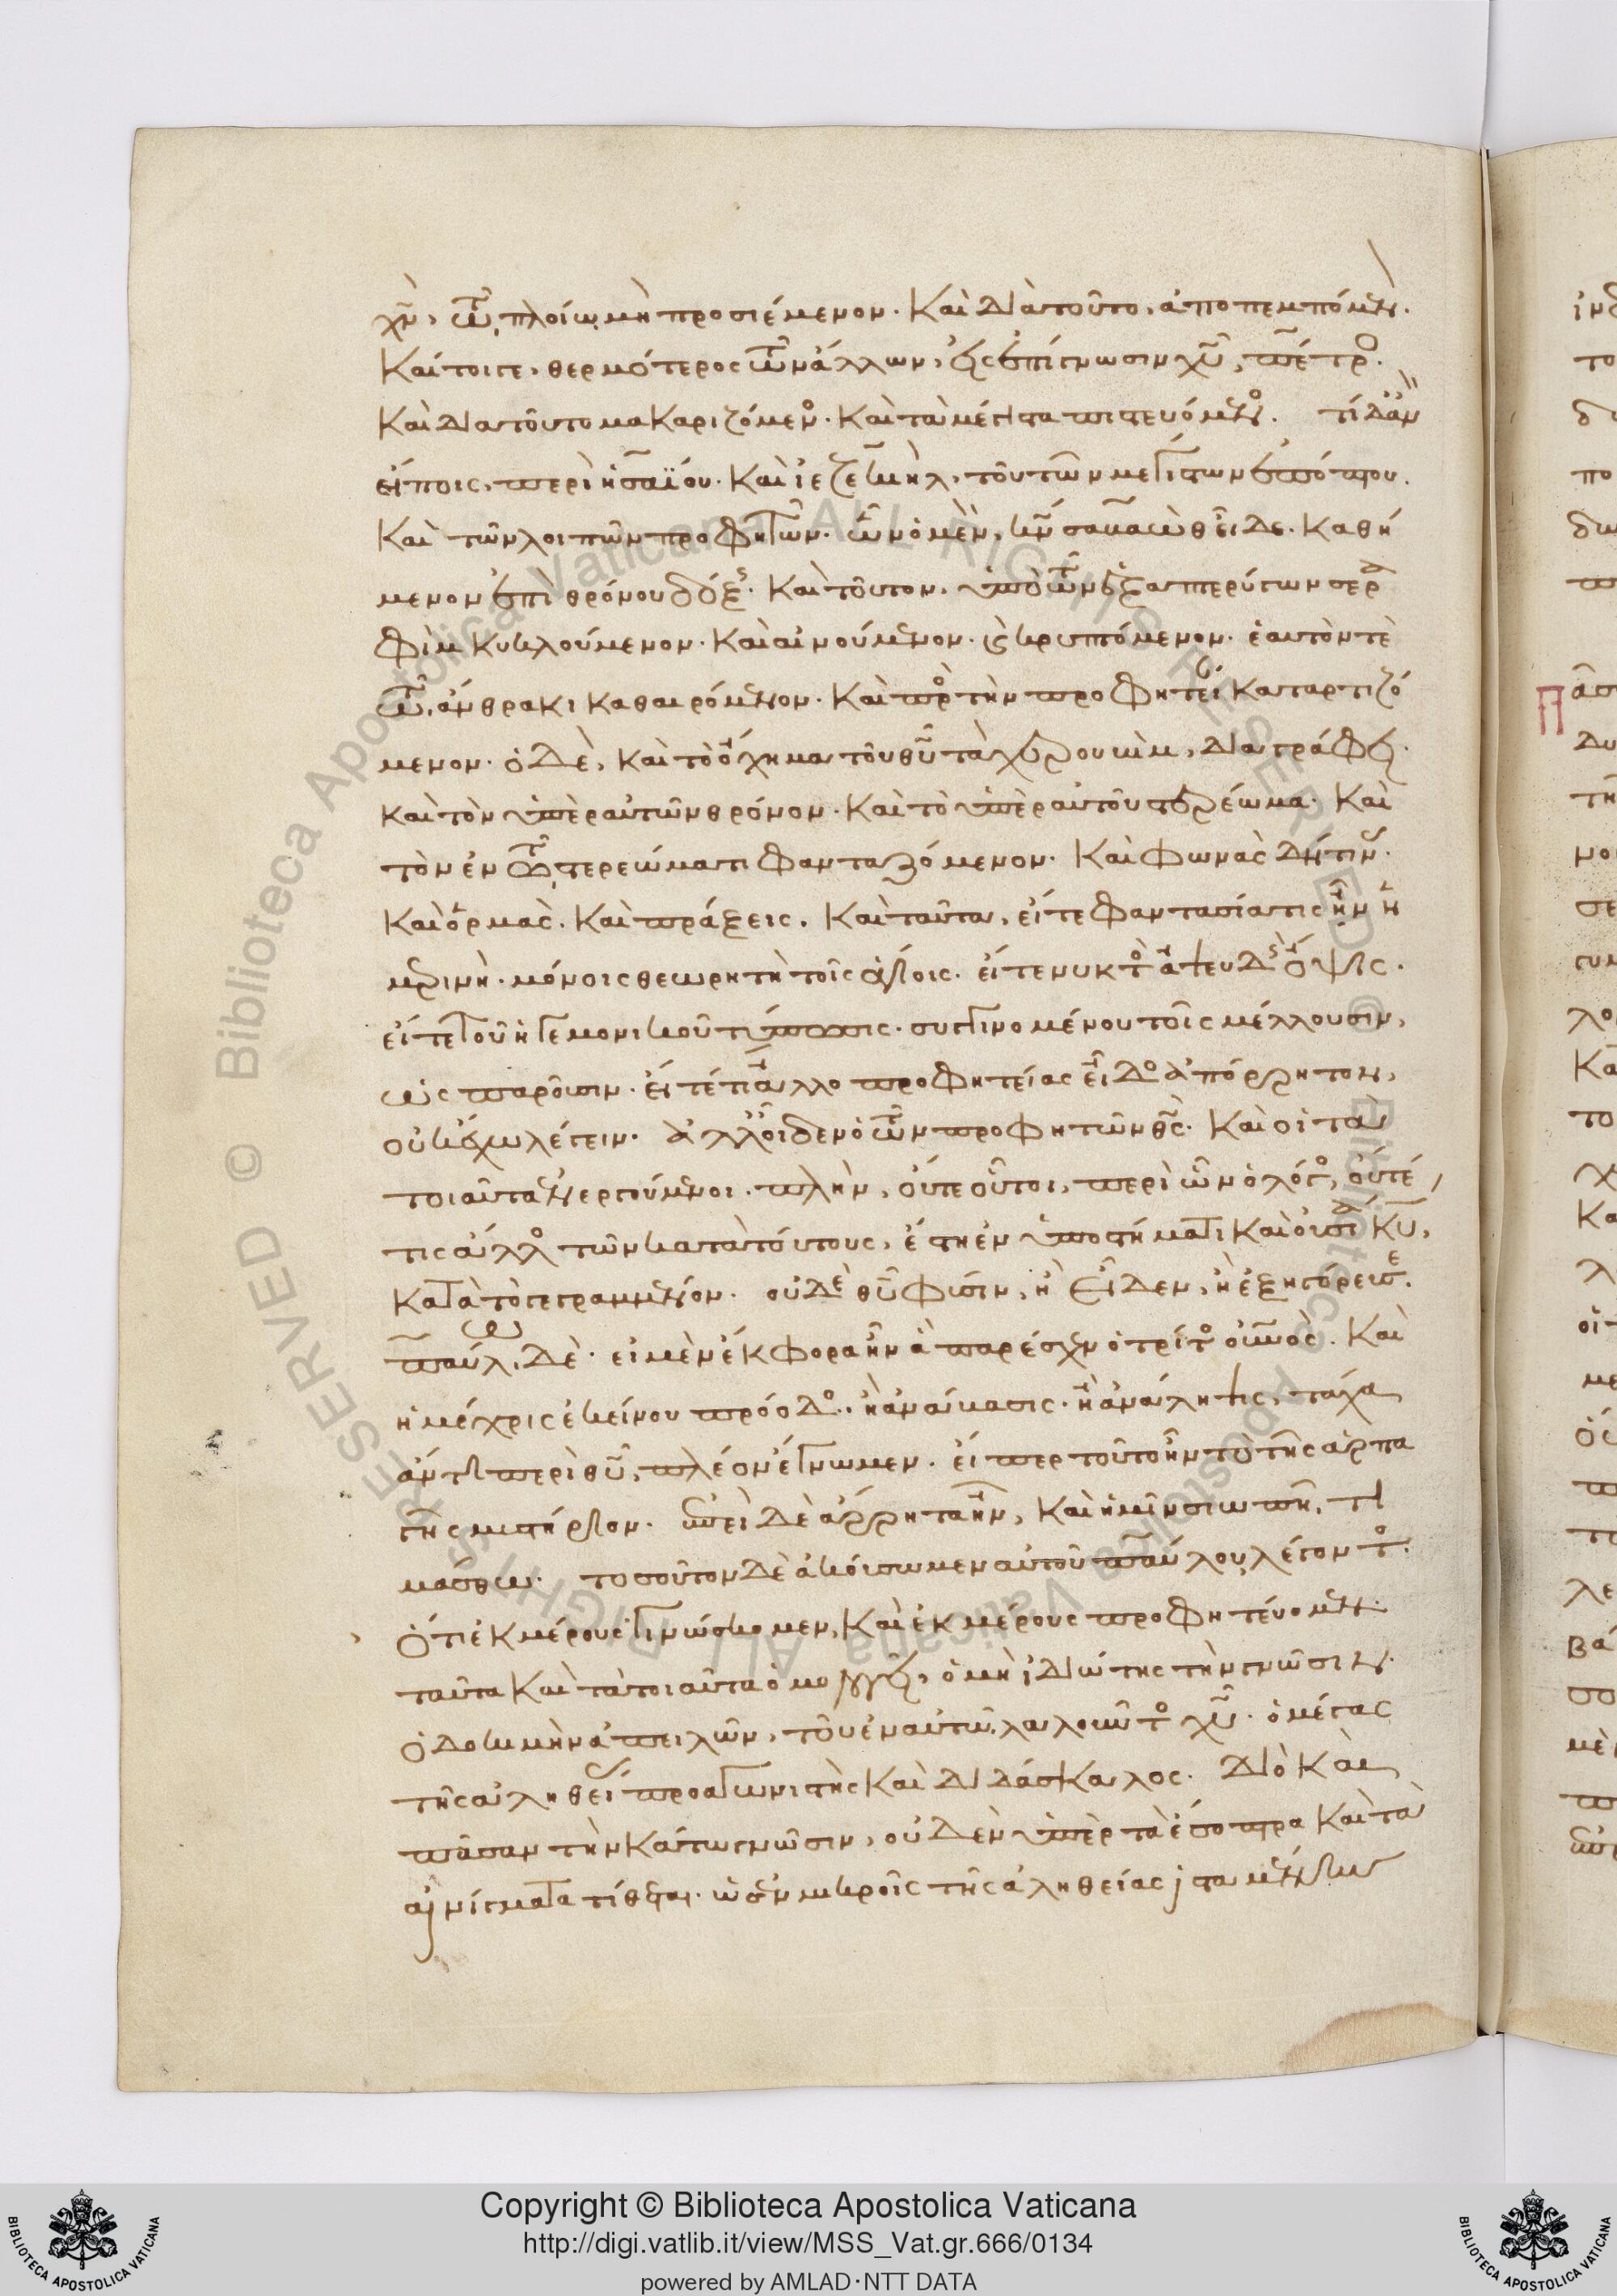 χν, τῷ πλοίῳ μὴ προσιέμενον. Καὶ διὰ τοῦτο, ἀποπεμπόμεν.
Καίτοιγε, θερμότερος τῶν ἄλλων, εἰς ἐπίγνωσιν χυ, πέτρο.
Καὶ διὰ τοῦτο μακαριζόμενο. Καὶ τὰ μέγιστα πιστευόμενο. τί δ' ἂν
εἴποις, περὶ ἡσαΐου. Καὶ ἰεζεκιὴλ, τοῦ τῶν μεγίστων ἐπόπτου.
Καὶ τῶν λοιπῶν προφητῶν. ὧν ὁ μὲν, κν σαβαὼθ εἶδε. Καθή
μενον ἐπὶ θρόνου δόξης. Καὶ τοῦτον, ὑπὸ τῶν ἑξαπτερύγων σερα
φὶμ κυκλούμενον. Καὶ αἰνούμενον. καὶ κρυπτόμενον. ἑαυτόν τὲ
τῷ ἄνθρακι καθαιρόμενον. Καὶ πρὸς τὴν προφητείαν καταρτιζό
μενον. ὁ δὲ, καὶ τὸ ὄχημα τοῦ θυ τὰ χερουβὶμ, διαγράφει.
καὶ τὸν ὑπὲρ αὐτῶν θρόνον. Καὶ τὸ ὑπὲρ αὐτοῦ στερέωμα. Καὶ
τὸν ἐν τῷ στερεώματι φανταζόμενον. Καὶ φωνὰς δή τιν.
Καὶ ὁρμὰς. Καὶ πράξεις. Καὶ ταῦτα, εἴτε φαντασία τις ἦν ἡ
μερινὴ. μόνοις θεωρητὴ τοῖς ἁγίοις. εἴτε νυκτὸ ἀψευδὴς ὄψις.
εἴτε τοῦ ἡγεμονικοῦ τύπωσις. συγγινομένου τοῖς μέλλουσιν,
ὡς παροῦσιν. εἴτέ τι ἄλλο προφητείας εἶδο ἀπόρρητον,
οὐκ ἔχω λέγειν. ἀλλ' οἶδεν ὁ τῶν προφητῶν θς. Καὶ οἱ τὰ
τοιαῦτα ἐνεργούμενοι. πλὴν, οὔτε οὗτοι, περὶ ὧν ὁ λόγο, οὔτέ
τις ἄλλο τῶν κατὰ τούτους, ἔστη ἐν ὑποστήματι καὶ οὐσία κυ,
Κατὰ τὸ γεγραμμένον. οὐδὲ θυ φύσιν, ἢ εἶδεν, ἢ ἐξηγόρευσε.
παύλω δὲ. εἰ μὲν ἔκφορα ἦν ἃ παρέσχεν ὁ τρίτο ουνος. Καὶ
ἡ μέχρις ἐκείνου πρόοδο. ἢ ἀνάβασις. ἢ ἀνάληψις, τάχα
ἄν τι περὶ θυ, πλέον ἔγνωμεν. εἴπερ τοῦτο ἦν τὸ τῆς ἁρπα
γῆς μυστήριον. ἐπεὶ δὲ ἄρρητα ἦν, καὶ ἡμῖν σιωπῆ, τι
μάσθω. τοσοῦτον δὲ ἀκούσωμεν αὐτοῦ παύλου, λέγοντο.
ὅτι ἐκ μέρους γινώσκομεν, καὶ ἐκ μέρους προφητεύομεν.
ταῦτα καὶ τὰ τοιαῦτα ὁμολογεῖ, ὁ μὴ ἰδιώτης τὴν γνῶσιν.
ὁ δοκιμὴν ἀπειλῶν, τοῦ ἐν αὐτῶ λαλοῦντο χυ. ὁ μέγας
τῆς ἀληθείας προαγωνιστὴς καὶ διδάσκαλος. Διὸ καὶ
πᾶσαν τὴν κάτω γνῶσιν, οὐδὲν ὑπὲρ τὰ ἔσοπτρα καὶ τὰ
αἰνίγματα τίθεται. ὡς ἐν μικροῖς τῆς ἀληθείας ἱσταμένην
ALL RIGHTS RESERVED © Biblioteca Apostolica Vaticana
Copyright © Biblioteca Apostolica Vaticana
http://digi.vatlib.it/view/MSS_Vat.gr.666/0134
powered by AMLAD·NTT DATA
BIBLIOTECA APOSTOLICA VATICANA
BIBLIOTECA APOSTOLICA VATICANA